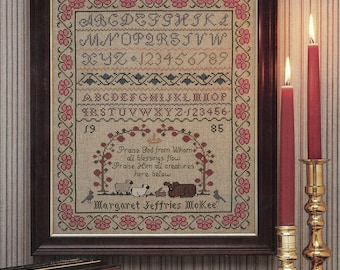 ABCDEFGHIJKL
MNOPQRSTUVW
XYZ 123456789
ABCDEFGHIJKLMNOP
QRSTUVWXYZ·123456
19 85
Praise God from Whom
all blessings flow
Praise Him all creatures
here below
Margaret Jeffries McKee